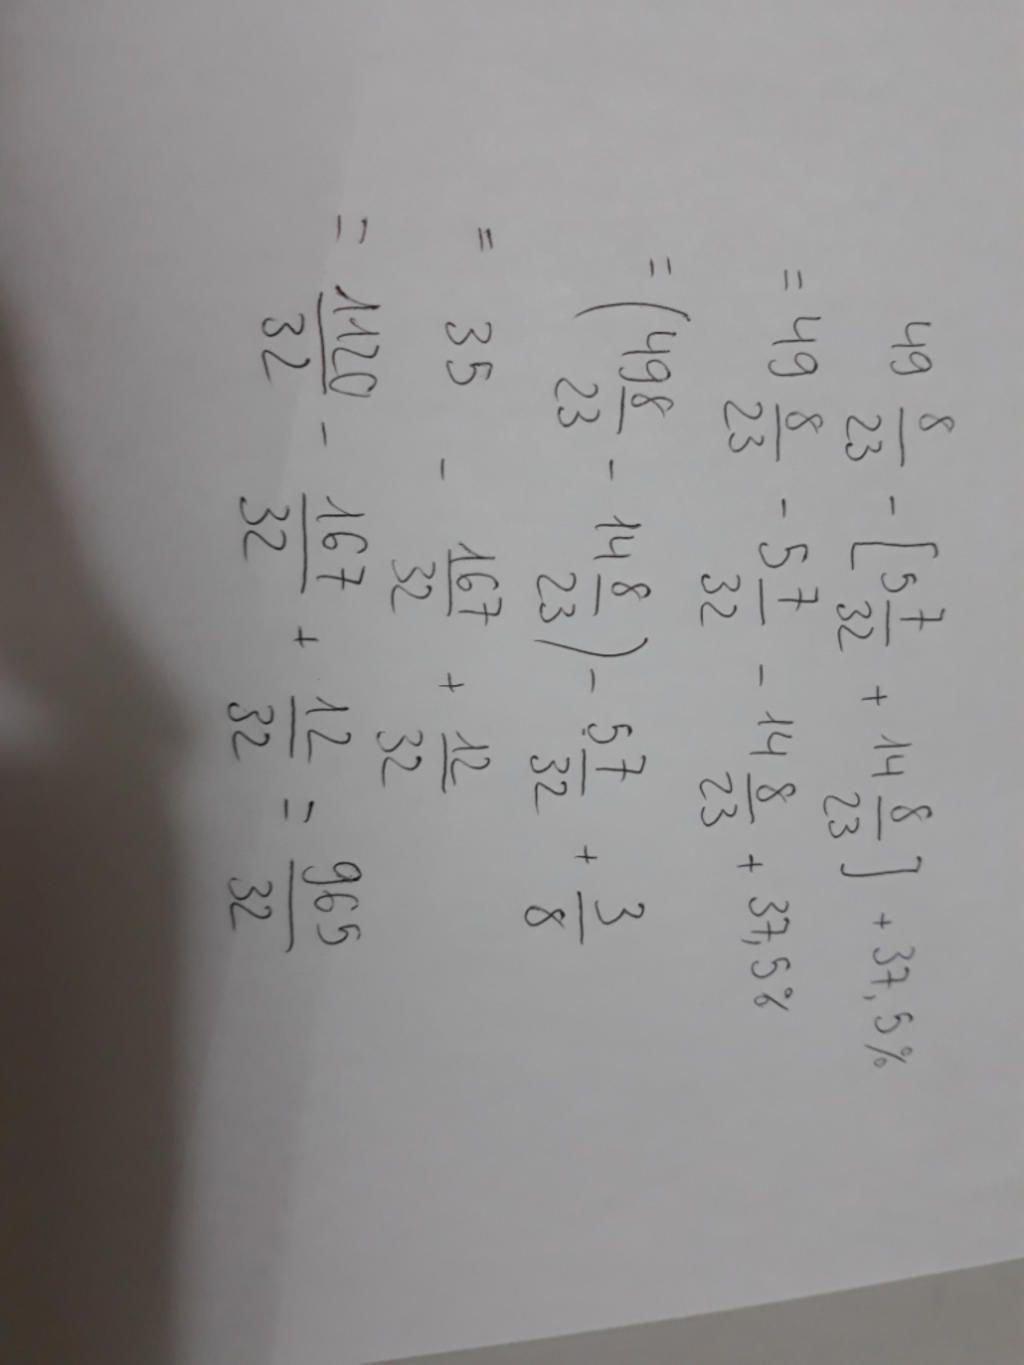 49 8/23 - [5 7/32 + 14 8/23] + 37,5%
= 49 8/23 - 5 7/32 - 14 8/23 + 37,5%
= (49 8/23 - 14 8/23) - 5 7/32 + 3/8
= 35 - 167/32 + 12/32
= 1120/32 - 167/32 + 12/32 = 965/32